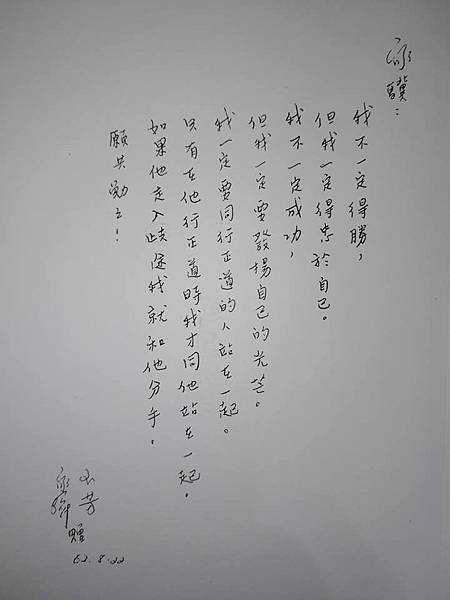 驥：
我不一定得勝，
但我一定得忠於自己。
我不一定成功，
但我一定要發揚自己的光芒。
我一定要同行正道的人站在一起。
只有在他行正道時我才同他站在一起。
如果他走入歧途我就和他分手。
願共勉之！
芳
贈
62.8.22